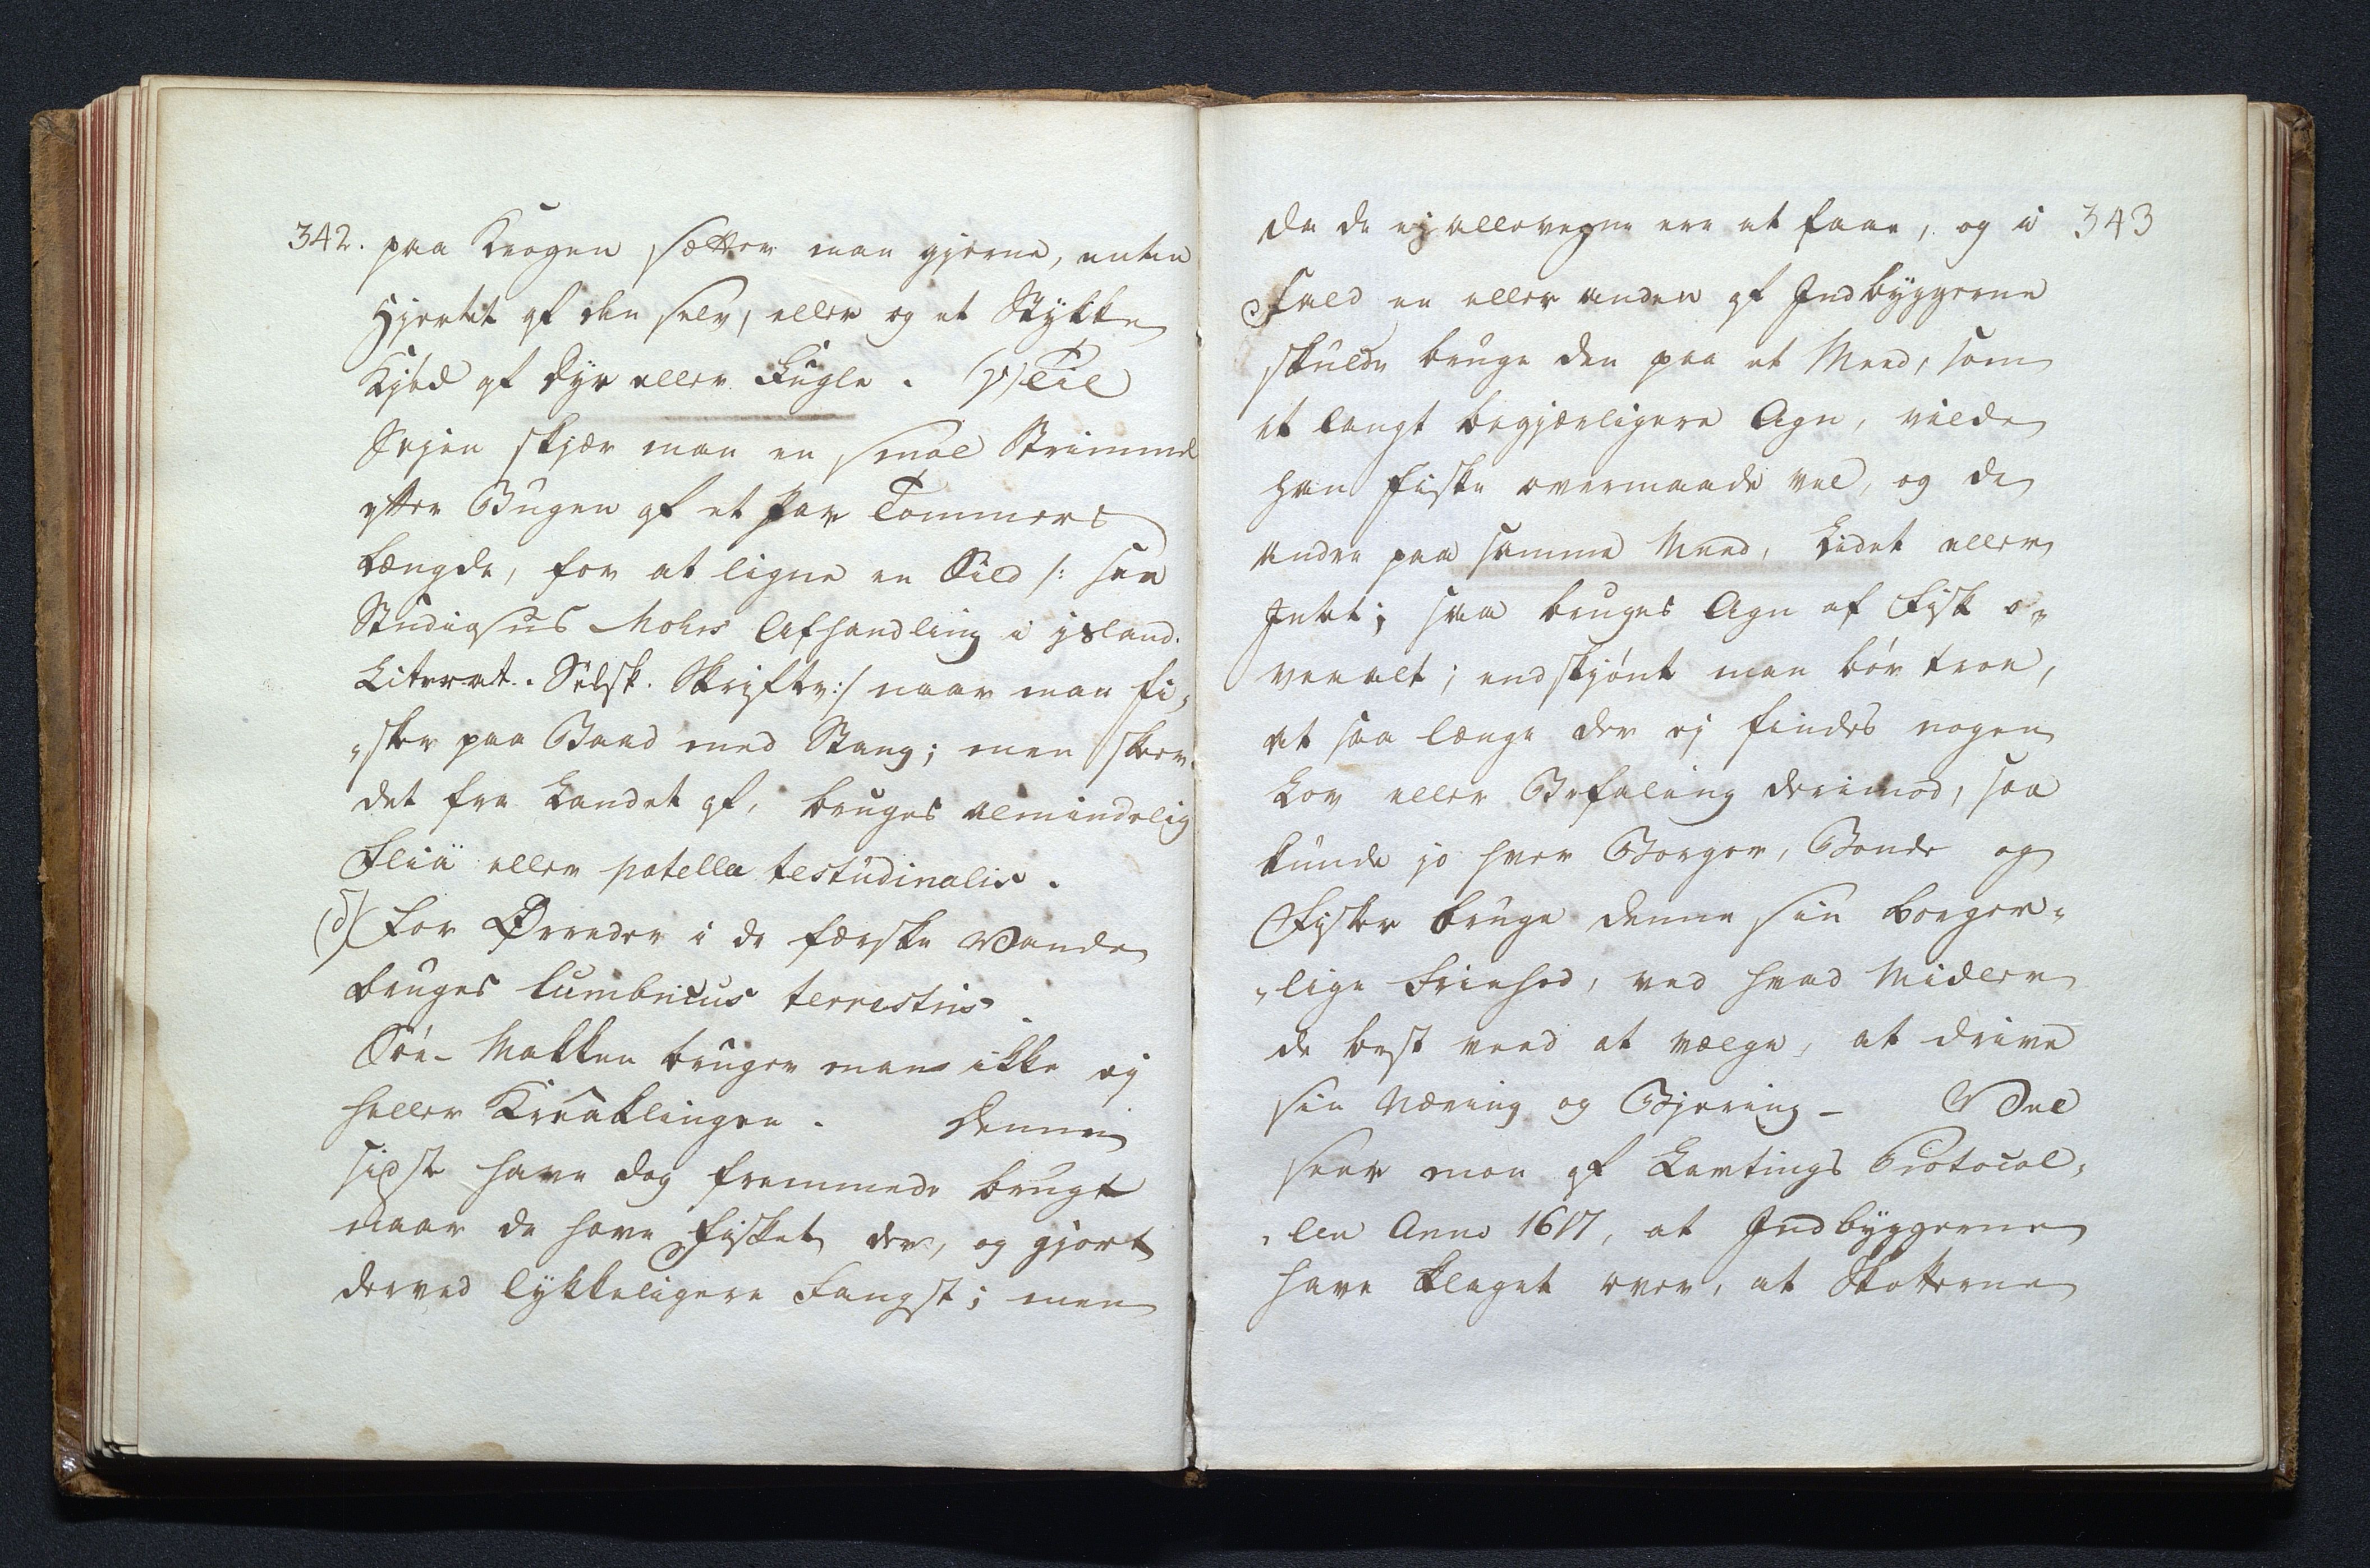 342. paa Krogen sætter man gjerne, enten
Hjertet af den selv, eller og et Stykke
Kjød af Dyr eller Fugle. (γ) Til
Sejen skjær man en smal Strimmel
efter Bugen af et Par Tommers
Længde, for at ligne en Sild /: see
Studiosus Mohrs Afhandling i Island.
Literat. Selsk. Skrifter :/ naar man fi,
„sker paa Baad med Stang; men skeer
det fra Landet af, bruges almindelig
Fliä eller patella testudinalis.
(δ) For Ørreder i de færske Vande
bruges lumbricus terrestris.
Söe-Makken bruger man ikke ej
heller Kräaklingen. Denne
sidste have dog fremmede brugt
naar de have fisket der, og gjort
derved lykkeligere Fangst; men
da de ej allevegne ere at faae, og i 343
Fald en eller anden af Indbyggerne
skulde bruge den paa et Meed, som
et langt begjærligere Agn, vilde
han fiske overmaade vel, og de
andre paa samme Meed, Lidet eller
Intet; saa bruges Agn af Fisk o„
veralt; endskjönt man bör troe,
at saa længe der ej findes nogen
Lov eller Befaling derimod, saa
kunde jo hver Borger, Bonde og
Fisker bruge denne sin borger„
„lige Friehed, ved hvad Midler
de best veed at vælge, at drive
sin Næring og Bjering – Vel
seer man af Lavtings Protocol„
„len Anno 1617, at Indbyggerne
have klaget over, at Skotterne